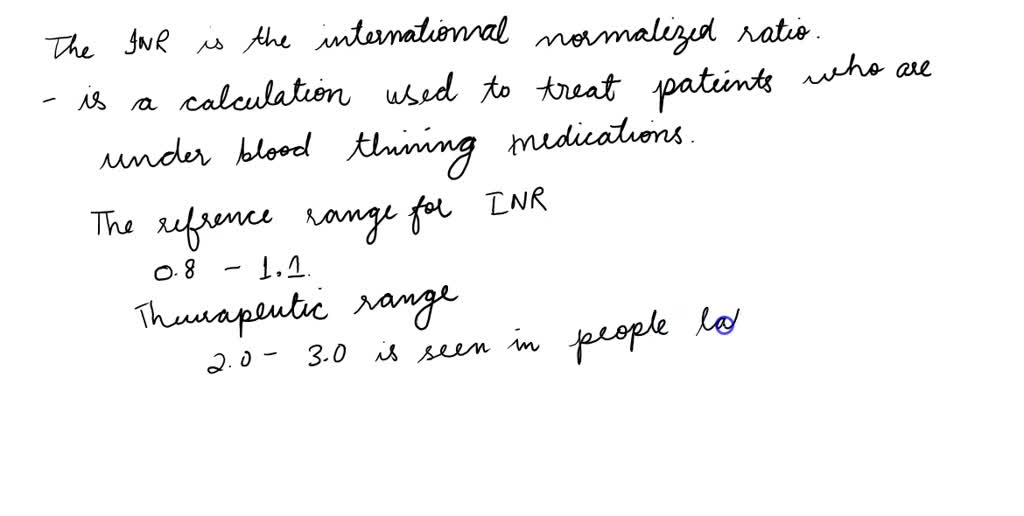 The INR is the internationnal normalized ratio.
- is a calculation used to treat pateints who are
under blood thining medications.
The refrence range for INR
0.8 - 1.1.
Therapeutic range
2.0 - 3.0 is seen in people